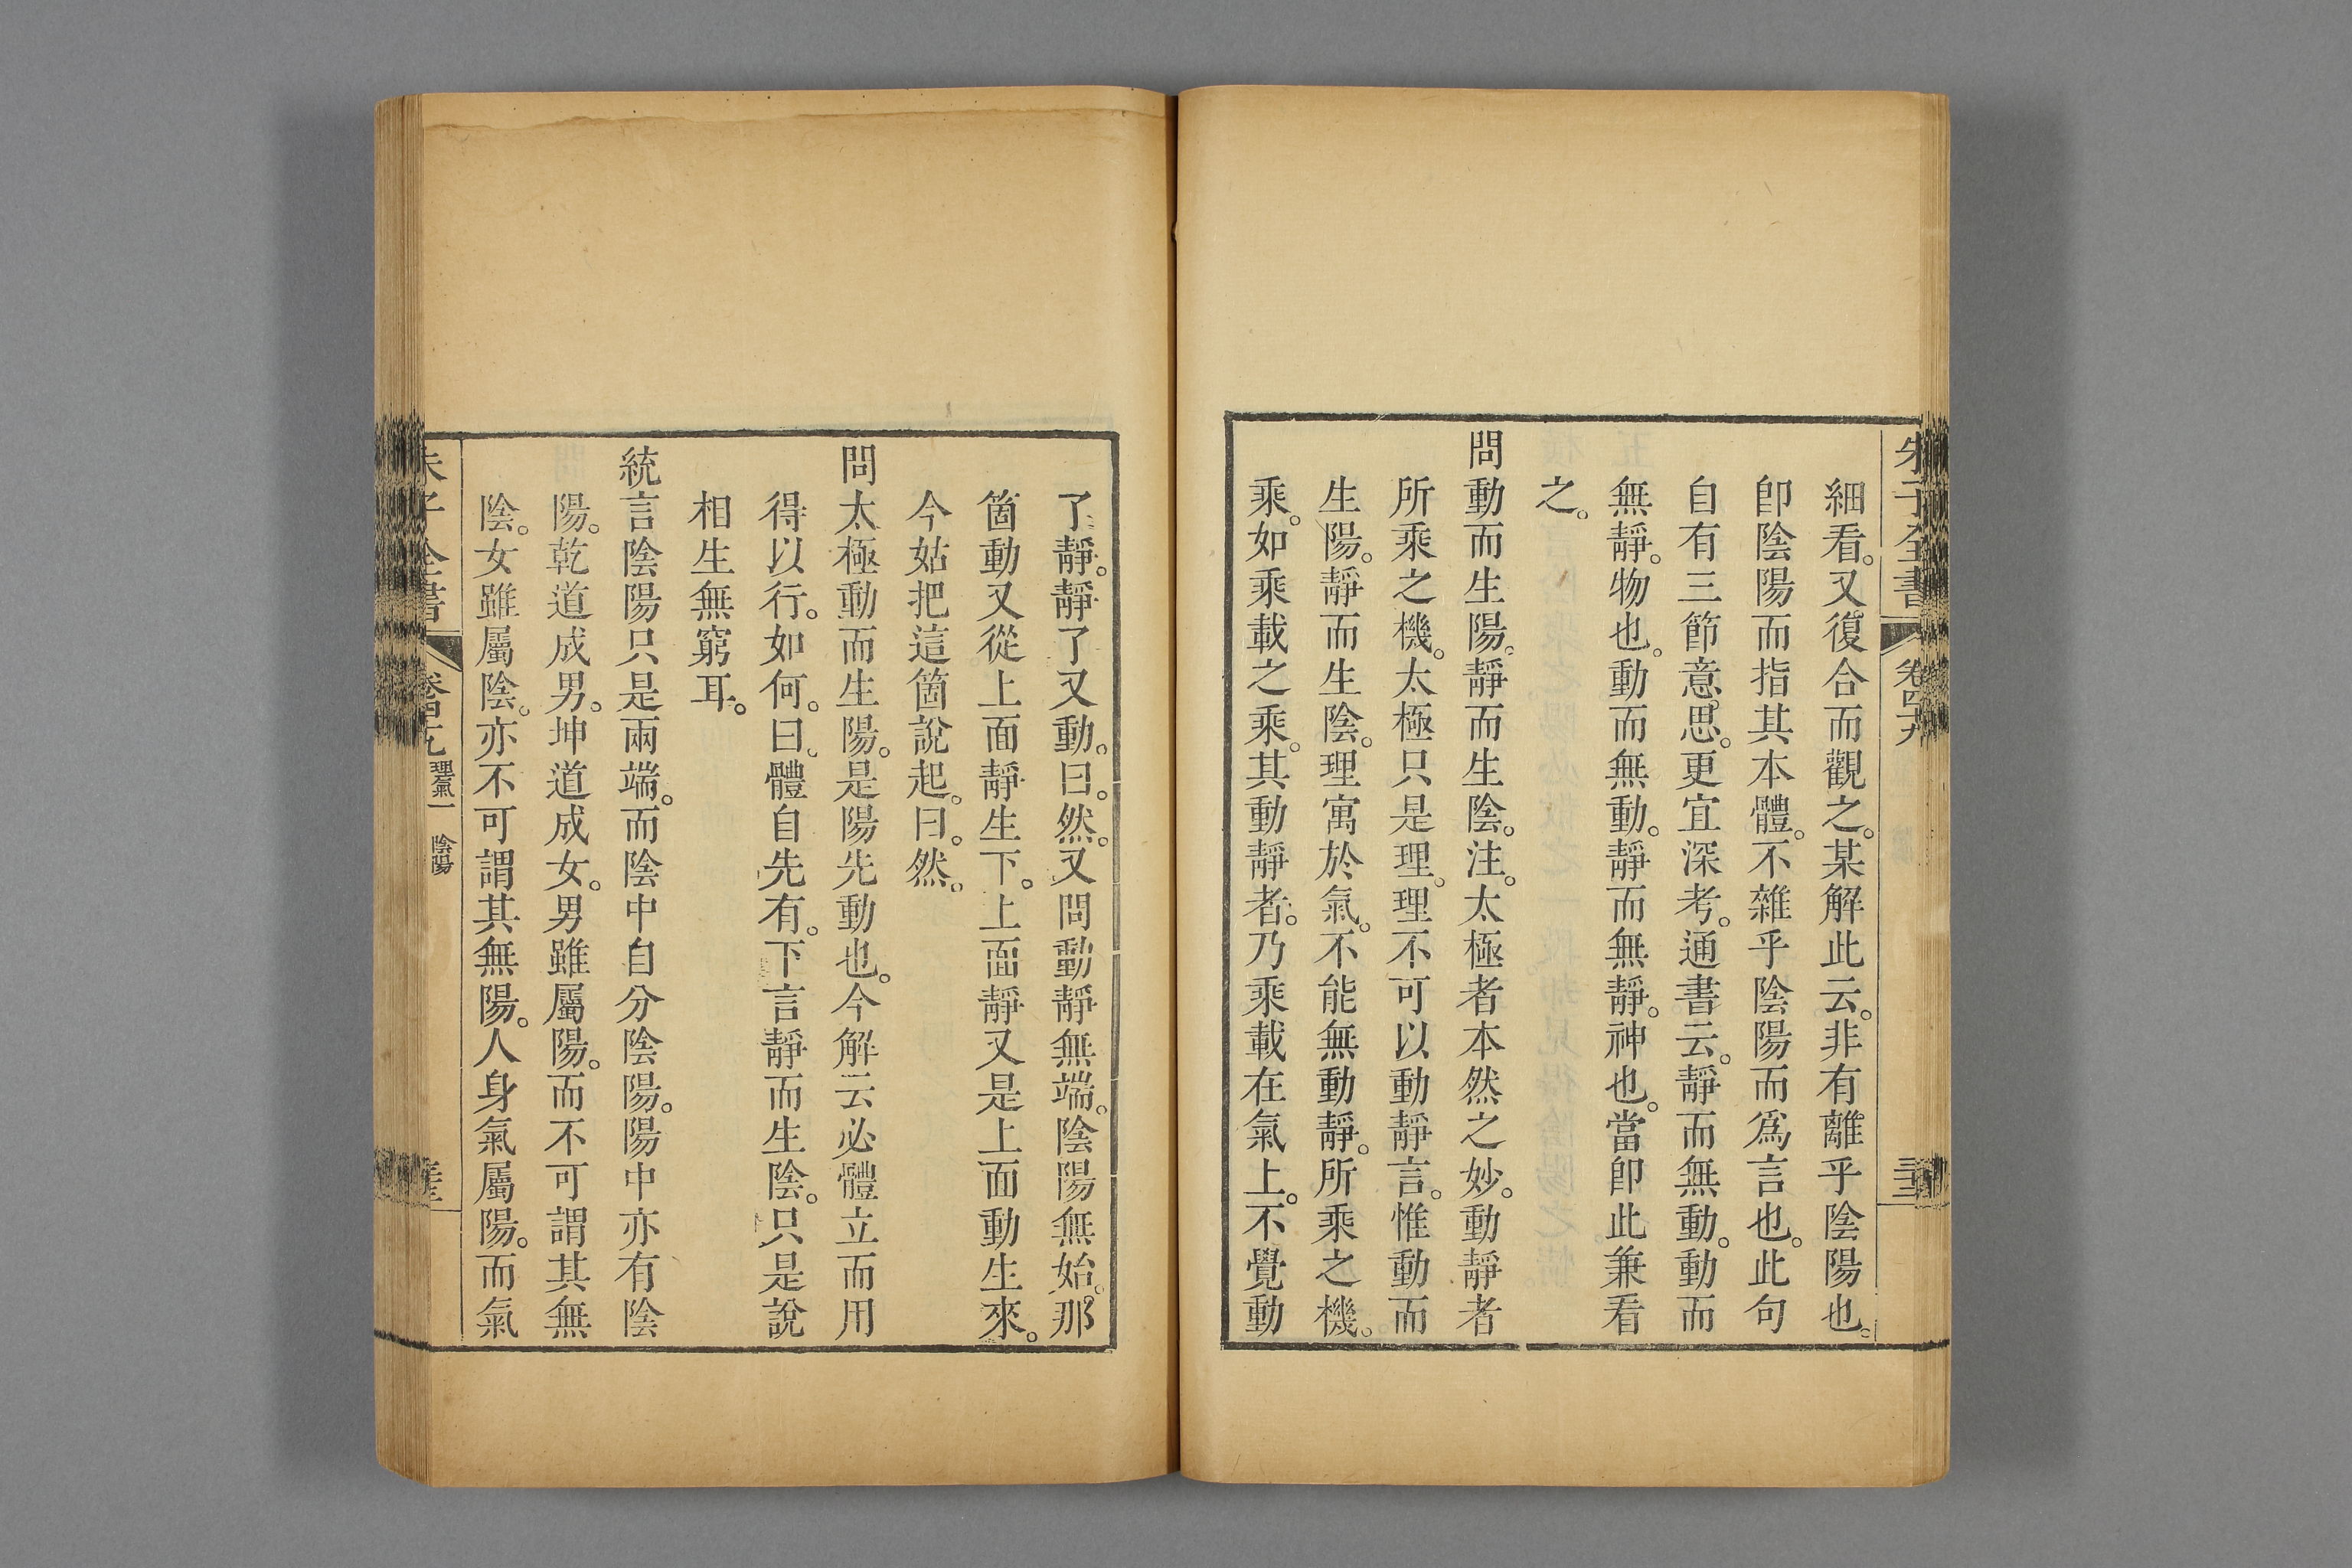 朱子全書 卷四十九
細看。又復合而觀之。某解此云。非有離乎陰陽也。
卽陰陽而指其本體。不雜乎陰陽而爲言也。此句
自有三節意思。更宜深考。通書云。靜而無動。動而
無靜。物也。動而無動。靜而無靜。神也。當卽此兼看
之。
問動而生陽。靜而生陰。注。太極者本然之妙。動靜者
所乘之機。太極只是理。理不可以動靜言。惟動而
生陽。靜而生陰。理寓於氣。不能無動靜。所乘之機。
乘。如乘載之乘。其動靜者。乃乘載在氣上。不覺動
了靜。靜了又動。曰。然。又問動靜無端。陰陽無始。那
箇動又從上面靜生下。上面靜又是上面動生來。
今姑把這箇說起。曰。然。
問太極動而生陽。是陽先動也。今解云必體立而用
得以行。如何。曰。體自先有。下言靜而生陰。只是說
相生無窮耳。
統言陰陽只是兩端。而陰中自分陰陽。陽中亦有陰
陽。乾道成男。坤道成女。男雖屬陽。而不可謂其無
陰。女雖屬陰。亦不可謂其無陽。人身氣屬陽。而氣
朱子全書 卷四十九 理氣一 陰陽